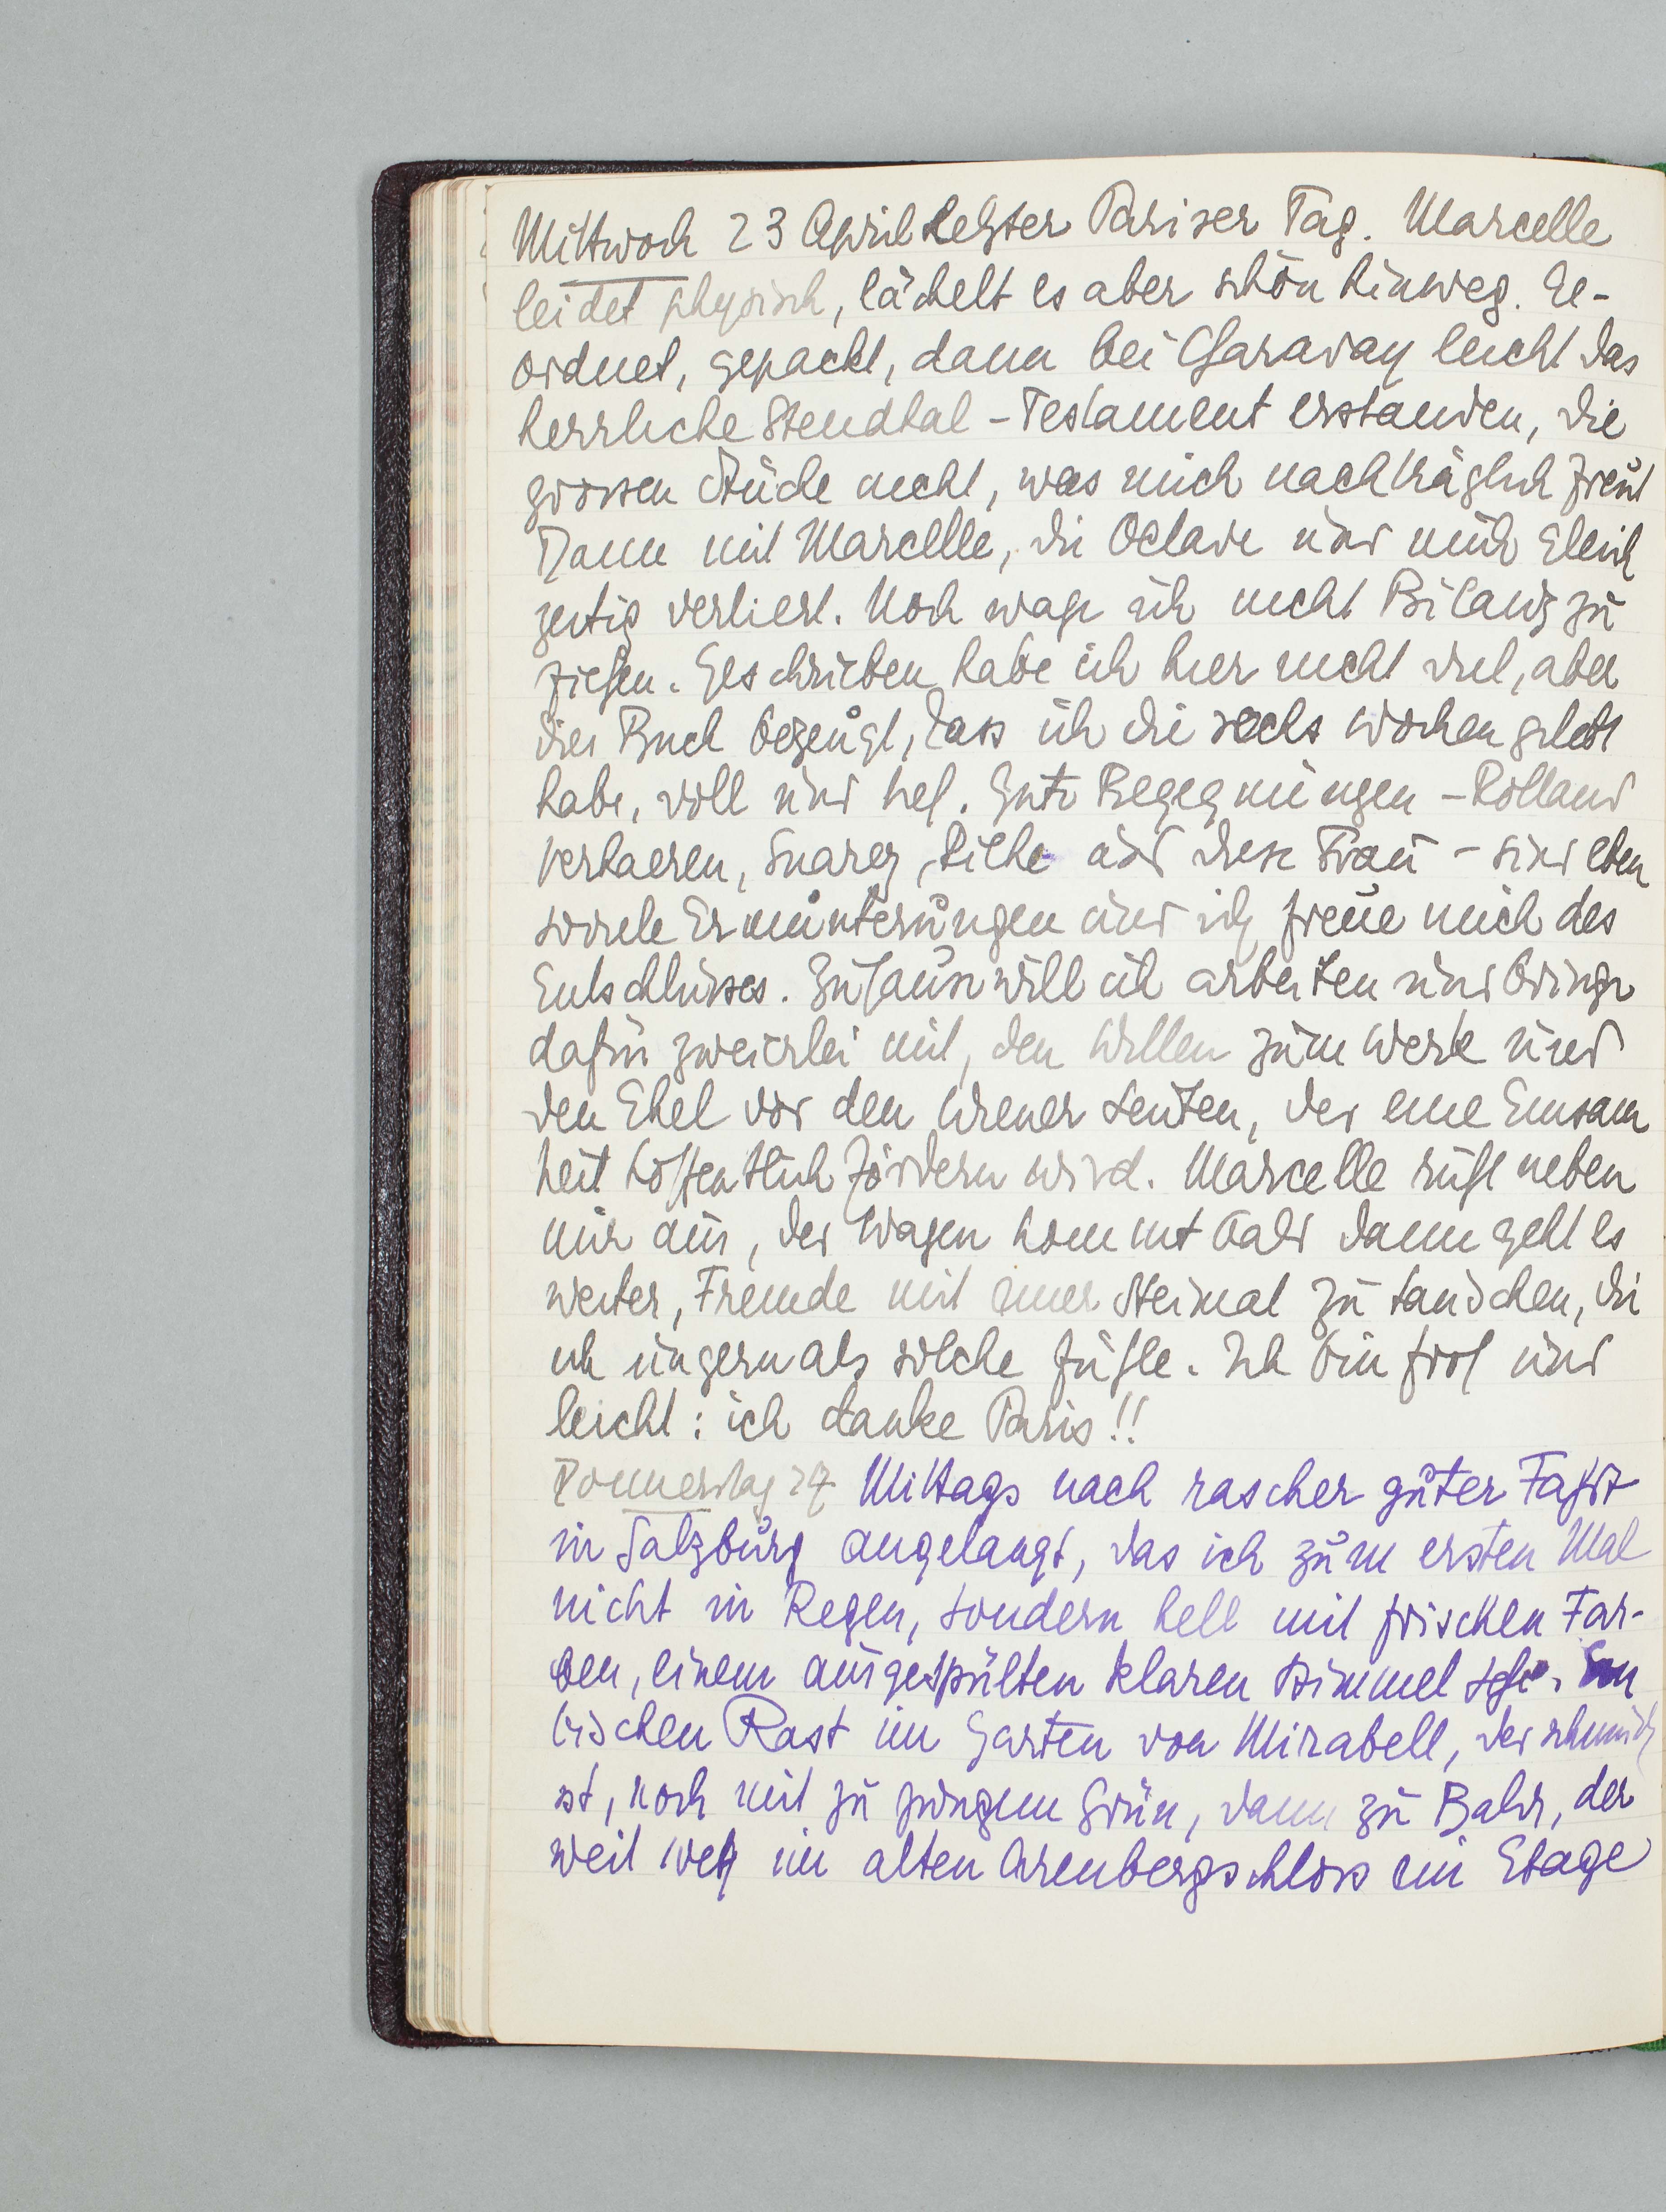 Mittwoch 23 April Letzter Pariser Tag. Marcelle
leidet physisch, lächelt es aber schön hinweg. Ge-
ordnet, gepackt, dann bei Charavay leicht das
herrliche Stendhal-Testament erstanden, die
grossen Stücke nicht, was mich nachträglich freut
Dann mit Marcelle, die Octave und mich gleich
zeitig verliert. Noch wage ich nicht Bilanz zu
ziehen. Geschrieben habe ich hier nicht viel, aber
dies Buch bezeugt, dass ich die sechs Wochen gelebt
habe, voll und tief. Gute Begegnungen - Rolland
Verhaeren, Suarez, Rilke und diese Frau - sind eben
soviele Ermunterungen und ich freue mich des
Entschlusses. Zuhause will ich arbeiten und bringe
dafür zweierlei mit, den Willen zum Werk und
den Ekel vor den Wiener Leuten, der eine Einsam
heit hoffentlich fördern wird. Marcelle ruht neben
mir aus, der Wagen kommt bald dann geht es
weiter, Fremde mit einer Heimat zu tauschen, die
ich ungern als solche fühle. Ich bin froh und
leicht: ich danke Paris!!
Donnerstag 24 Mittags nach rascher guter Fahrt
in Salzburg angelangt, das ich zum ersten Mal
nicht in Regen, sondern hell mit frischen Far-
ben, einem ausgespülten klaren Himmel sehe. Ein
bischen Rast im Garten von Mirabell, der schön
ist, noch mit zu jungem Grün, dann zu Bahr, der
weit weg im alten Arenbergschloss ein Etage